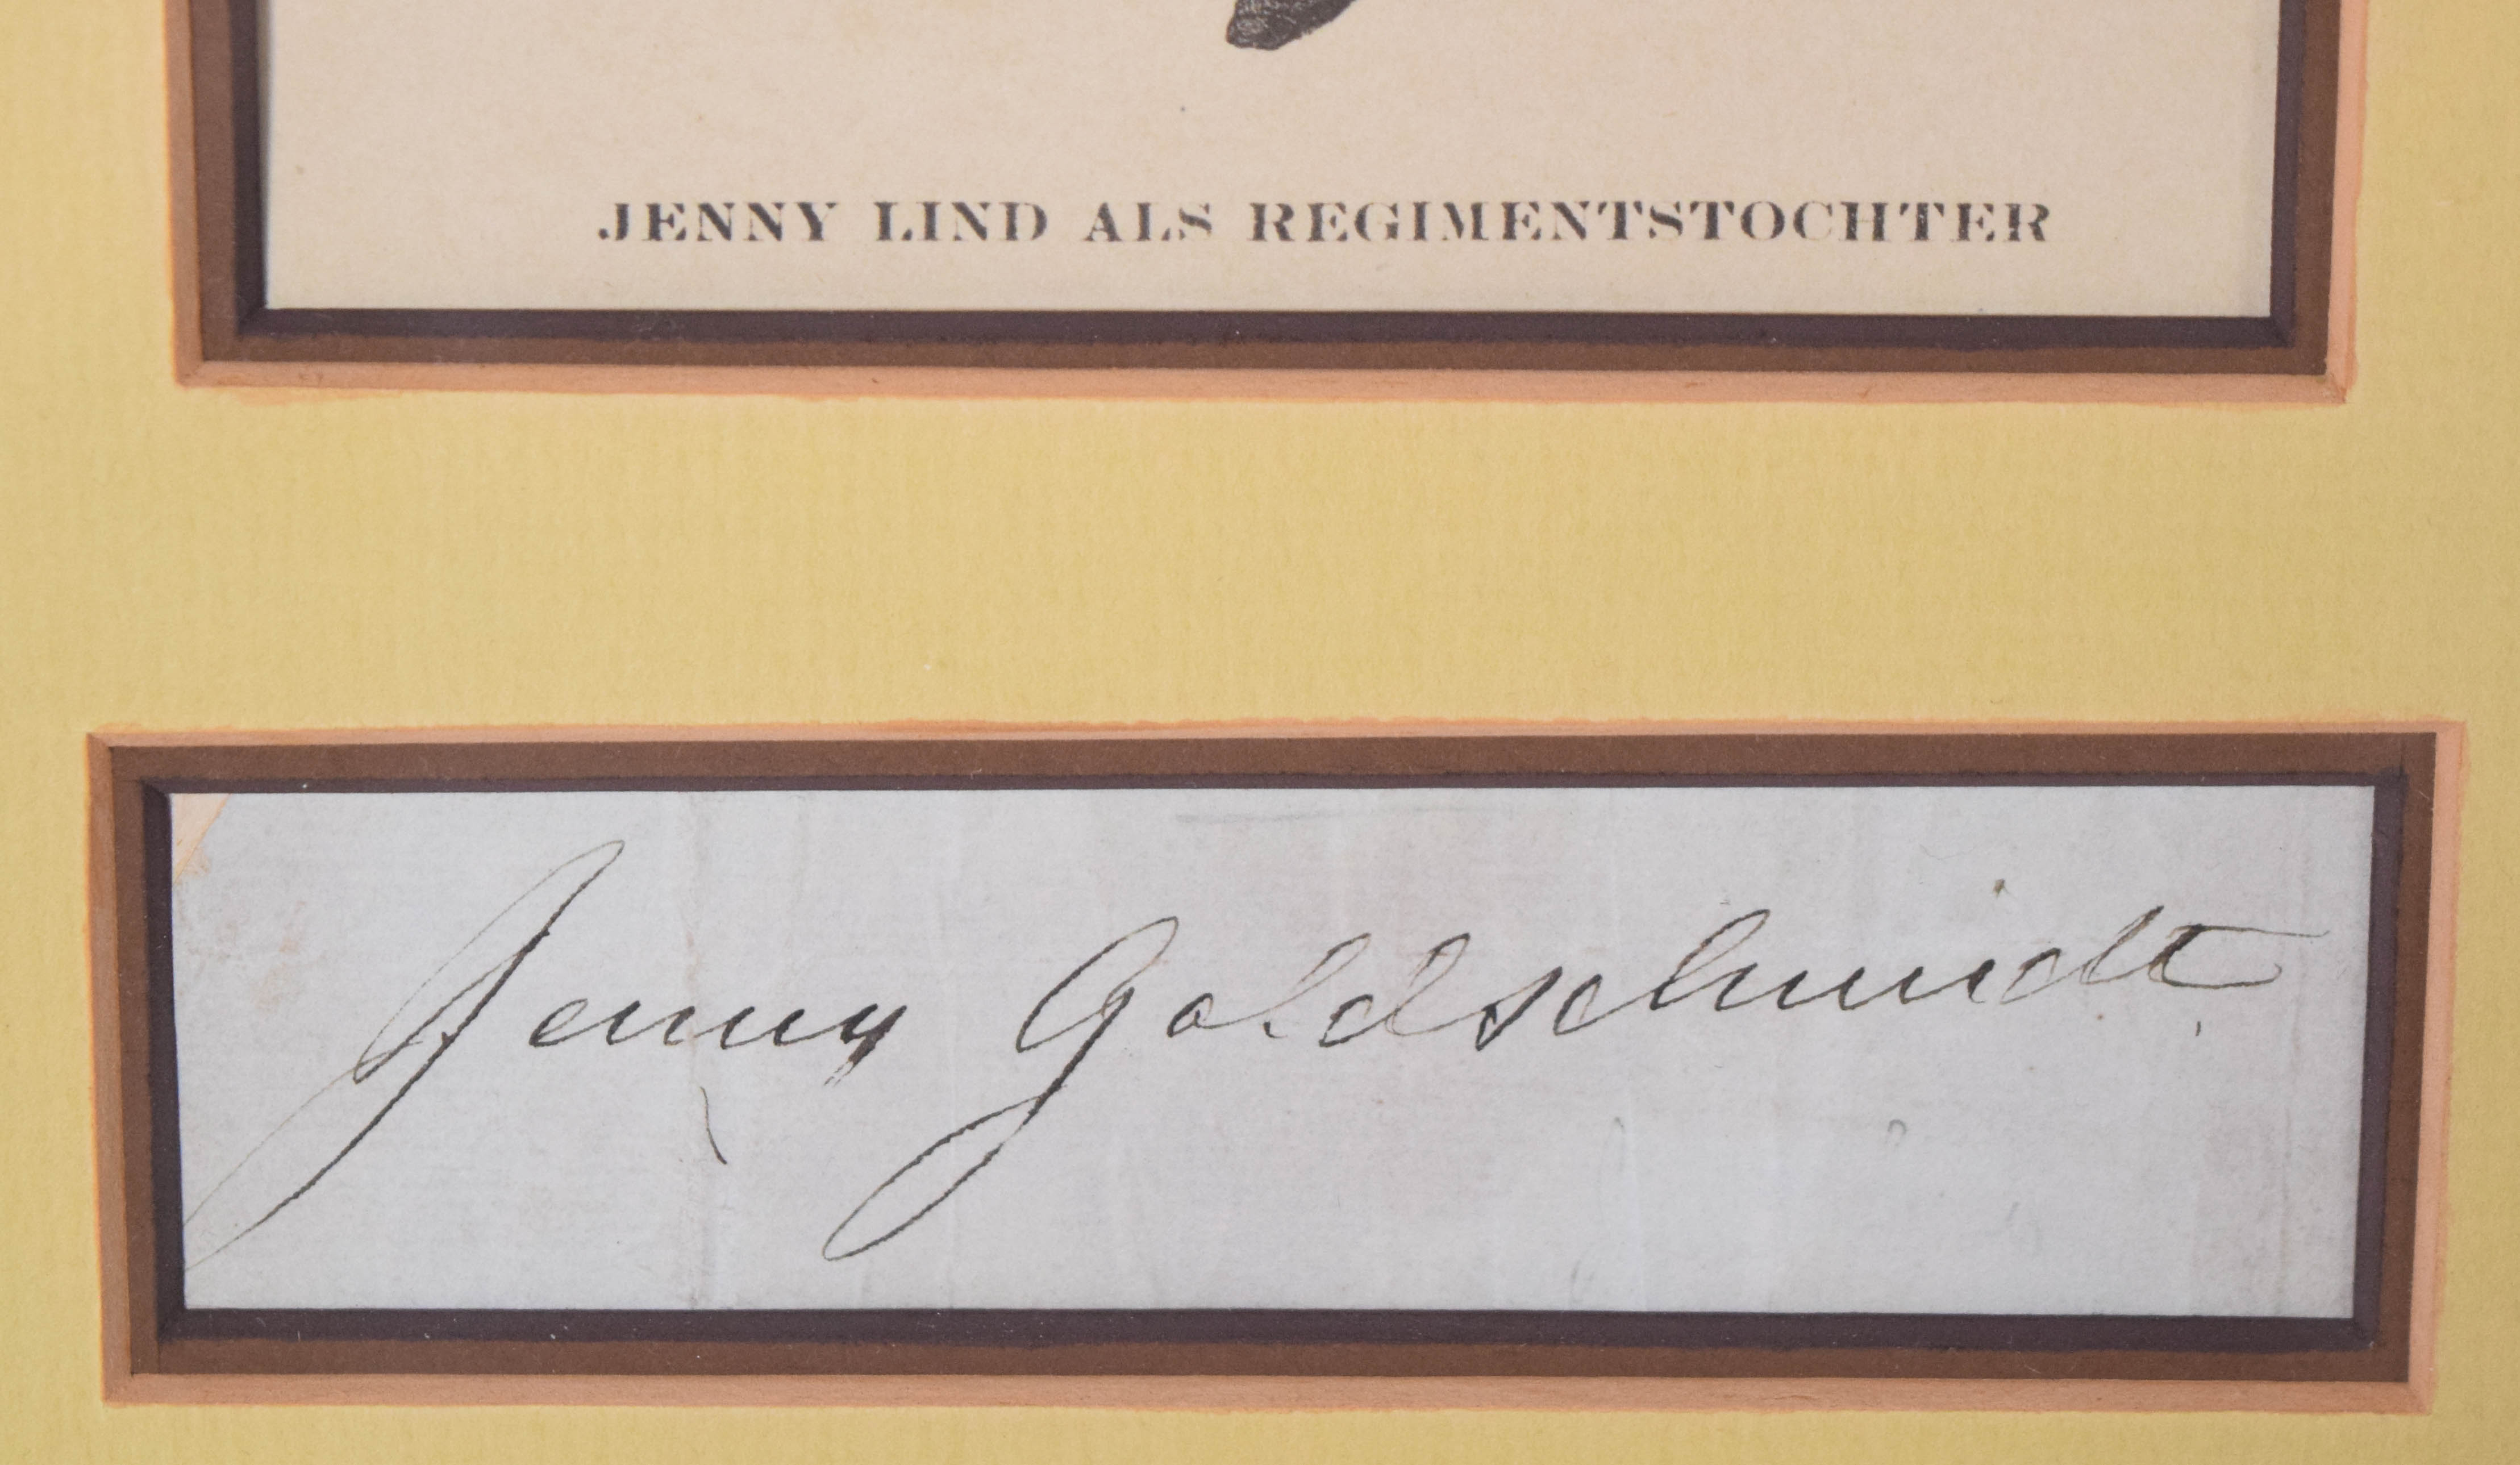 JENNY LIND ALS REGIMENTSTOCHTER
Jenny Goldschmidt